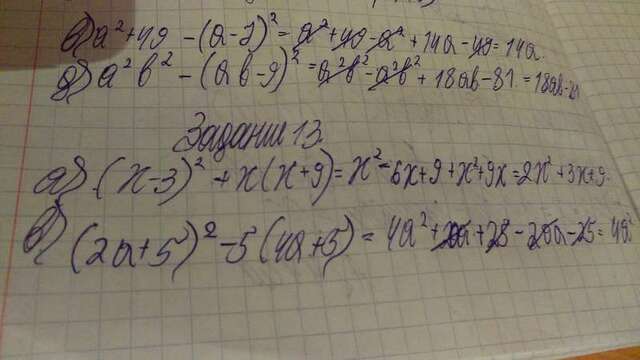 в) a² + 49 - (a - 7)² = a² + 49 - a² + 14a - 49 = 14a
д) a²b² - (ab - 9)² = a²b² - a²b² + 18ab - 81 = 18ab - 81
Задание 13.
а) (x - 3)² + x(x + 9) = x² - 6x + 9 + x² + 9x = 2x² + 3x + 9
в) (2a + 5)² - 5(4a + 5) = 4a² + 20a + 25 - 20a - 25 = 4a²